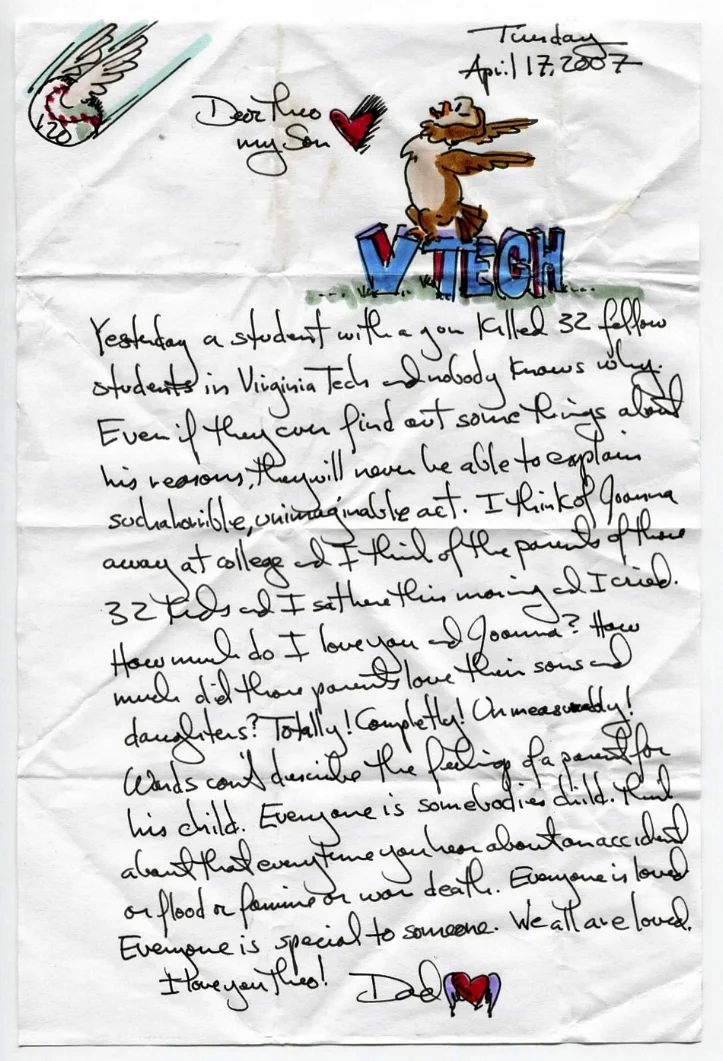 Tuesday
April 17, 2007
120
Dear Theo
my Son
V TECH
Yesterday a student with a gun killed 32 fellow
students in Virginia Tech and nobody knows why.
Even if they ever find out some things about
his reasons, they will never be able to explain
such a horrible, unimaginable act. I think of Joanna
away at college and I think of the parents of those
32 kids and I sat here this morning and I cried.
How much do I love you and Joanna? How
much did those parents love their sons and
daughters? Totally! Completly! Unmeasuredly!
Words can't describe the feelings of a parent for
his child. Everyone is somebodies child. Think
about that everytime you hear about an accident
or flood or famine or war death. Everyone is loved
Everyone is special to someone. We all are loved.
I love you Theo! Dad